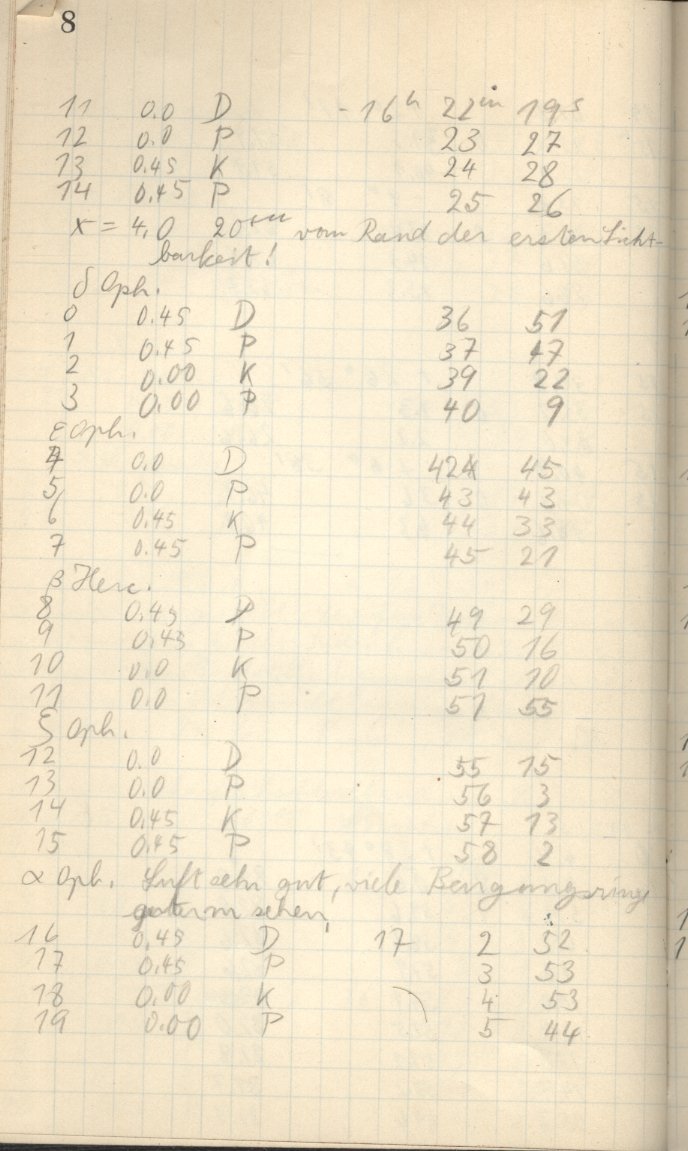 8
11 0.0 D - 16h 22m 19s
12 0.0 P 23 27
13 0.45 K 24 28
14 0.45 P 25 26
x = 4.0 20 vom Rand der ersten Sicht-
barkeit!
δ Oph.
0 0.45 D 36 51
1 0.45 P 37 47
2 0.00 K 39 22
3 0.00 P 40 9
ε Oph.
4 0.0 D 42 45
5 0.0 P 43 43
6 0.45 K 44 33
7 0.45 P 45 21
β Herc.
8 0.45 D 49 29
9 0.45 P 50 16
10 0.0 K 51 10
11 0.0 P 51 55
ζ Oph.
12 0.0 D 55 15
13 0.0 P 56 3
14 0.45 K 57 13
15 0.45 P 58 2
α Oph. Luft sehr gut, viele Beugungsringe
sehen,
16 0.45 D 17 2 52
17 0.45 P 3 53
18 0.00 K 4 53
19 0.00 P 5 44